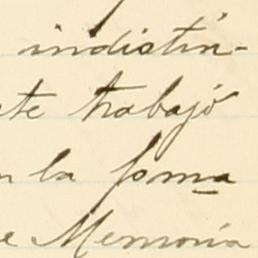 indistin-
te trabajó
n la forma
e Memoria